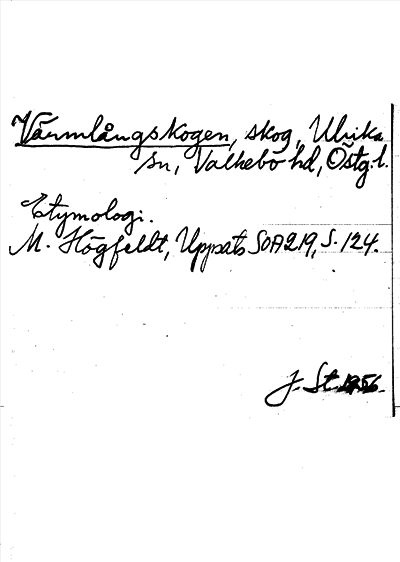 Värmlångskogen, skog, Ulrika
sn, Valkebo hd, Östg.l.
Etymologi.
M. Högfeldt, Uppsats SOA 219, S. 124.
J. St. 1956.